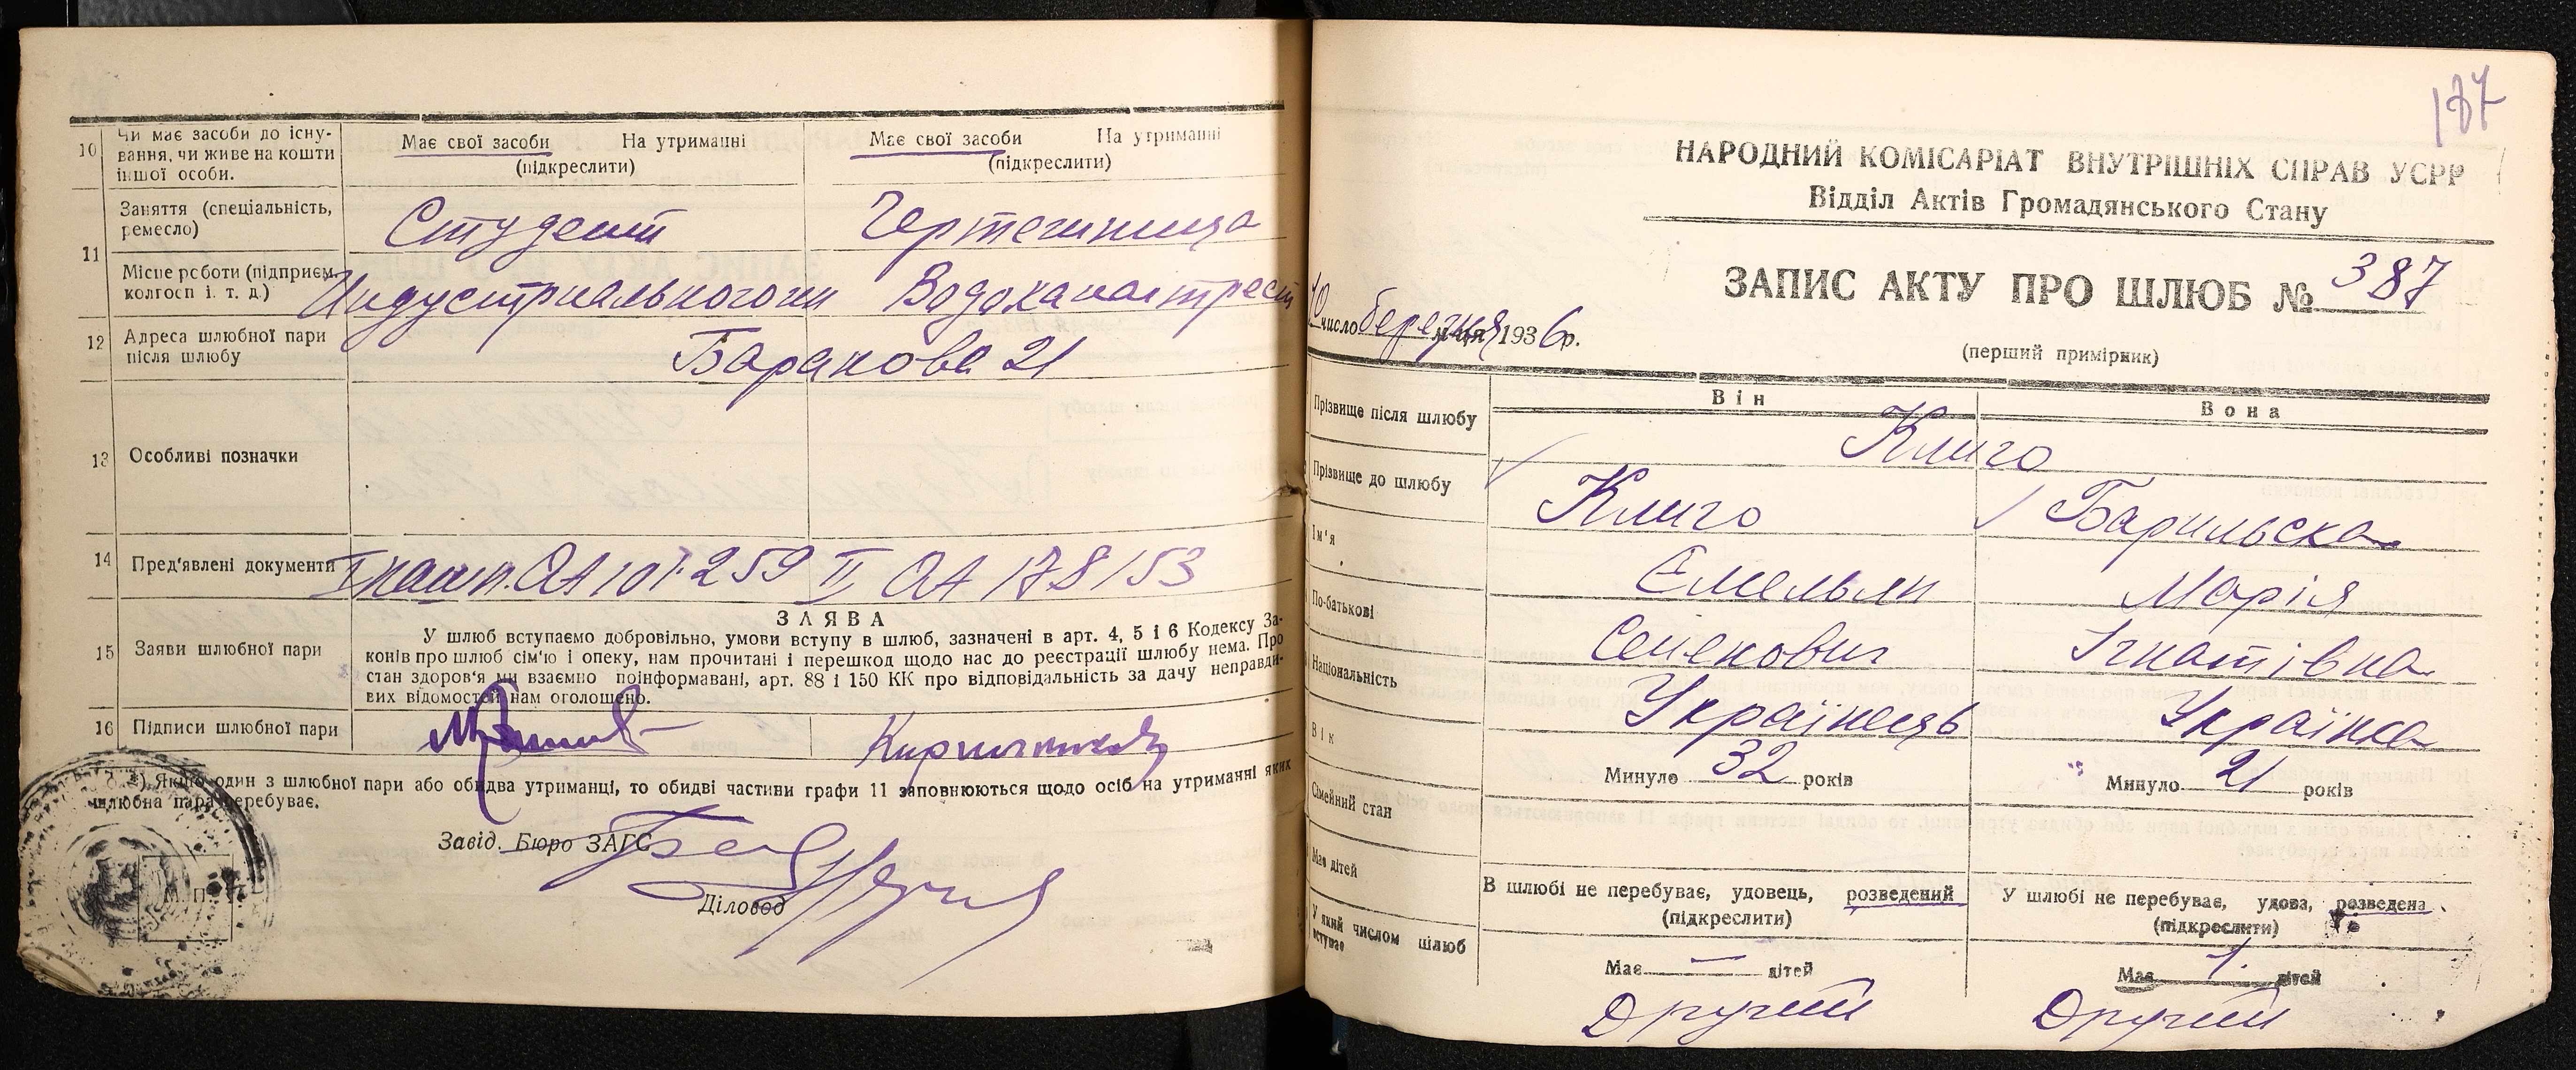 10 Чи має засоби до існу-
вання, чи живе на кошти
іншої особи.
Має свої засоби На утриманні
(підкреслити)
Має свої засоби На утриманні
(підкреслити)
11 Заняття (спеціальність,
ремесло)
Студент
Чертежница
Місце роботи (підприєм.
колгосп і. т. д.)
Индустриального ин
Водоканалтрест
12 Адреса шлюбної пари
після шлюбу
Баракова 21
13 Особливі позначки
14 Пред'явлені документи
I пашп. ОА 107259 II ОА 178153
15 Заяви шлюбної пари
ЗАЯВА
У шлюб вступаємо добровільно, умови вступу в шлюб, зазначені в арт. 4, 5 і 6 Кодексу За-
конів про шлюб сім'ю і опеку, нам прочитані і перешкод щодо нас до реєстрації шлюбу нема. Про
стан здоров'я ми взаємно поінформавані, арт. 88 і 150 КК про відповідальність за дачу неправди-
вих відомостей нам оголошено.
16 Підписи шлюбної пари
*) Якщо один з шлюбної пари або обидва утриманці, то обидві частини графи 11 заповнюються щодо осіб на утриманні яких
шлюбна пара перебуває.
Завід. Бюро ЗАГС
Діловод
М. П.
НАРОДНИЙ КОМІСАРІАТ ВНУТРІШНІХ СПРАВ УСРР
Відділ Актів Громадянського Стану
ЗАПИС АКТУ ПРО ШЛЮБ № 387
10 число березня м-ця 1936 р.
(перший примірник)
Він
Вона
Прізвище після шлюбу
Клиго
Прізвище до шлюбу
Клиго
Барильска
Ім'я
Емельян
Марія
По-батькові
Семенович
Ігнатівна
Національність
Українець
Українка
Вік
Минуло 32 років
Минуло 21 років
Сімейний стан
В шлюбі не перебуває, удовець, розведений
(підкреслити)
У шлюбі не перебуває, удова, розведена
(підкреслити)
Має дітей
Має — дітей
Має 1. дітей
У який числом шлюб
вступає
Другий
Другий